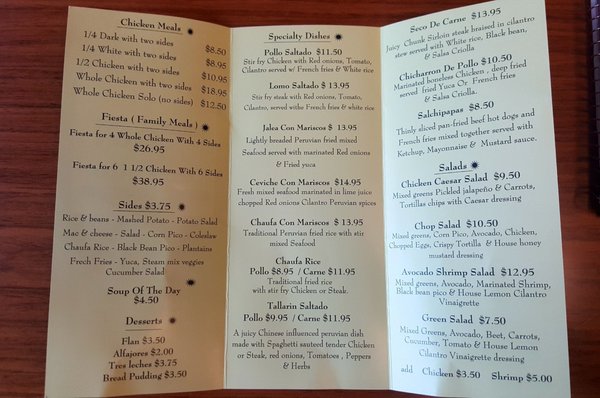 Chicken Meals
1/4 Dark with two sides $8.50
1/4 White with two sides $8.95
1/2 Chicken with two sides $10.95
Whole Chicken with two sides $18.95
Whole Chicken Solo (no sides) $12.50
Fiesta ( Family Meals )
Fiesta for 4 Whole Chicken With 4 Sides
$26.95
Fiesta for 6 1 1/2 Chicken With 6 Sides
$38.95
Sides $3.75
Rice & beans - Mashed Potato - Potato Salad
Mac & cheese - Salad - Corn Pico - Coleslaw
Chaufa Rice - Black Bean Pico - Plantains
Frech Fries - Yuca, Steam mix veggies
Cucumber Salad
Soup Of The Day
$4.50
Desserts
Flan $3.50
Alfajores $2.00
Tres leches $3.75
Bread Pudding $3.50
Specialty Dishes
Pollo Saltado $11.50
Stir fry Chicken with Red onions, Tomato,
Cilantro served w/ French fries & White rice
Lomo Saltado $ 13.95
Stir fry steak with Red onions, Tomato,
Cilantro, served withe French fries & white rice
Jalea Con Mariscos $ 13.95
Lightly breaded Peruvian fried mixed
Seafood served with marinated Red onions
& Fried yuca
Ceviche Con Mariscos $14.95
Fresh mixed seafood marinated in lime juice
chopped Red onions Cilantro Peruvian spices
Chaufa Con Mariscos $ 13.95
Traditional Peruvian fried rice with stir
mixed Seafood
Chaufa Rice
Pollo $8.95 / Carne $11.95
Traditional fried rice
with stir fry Chicken or Steak.
Tallarin Saltado
Pollo $9.95 / Carne $11.95
A juicy Chinese influenced peruvian dish
made with Spaghetti sauteed tender Chicken
or Steak, red onions, Tomatoes , Peppers
& Herbs
Seco De Carne $13.95
Juicy Chunk Sirloin steak braised in cilantro
stew served with White rice, Black bean,
& Salsa Criolla
Chicharron De Pollo $10.50
Marinated boneless Chicken , deep fried
served fried Yuca Or French fries
& Salsa Criolla.
Salchipapas $8.50
Thinly sliced pan-fried beef hot dogs and
French fries mixed together served with
Ketchup, Mayonnaise & Mustard sauce.
Salads
Chicken Caesar Salad $9.50
Mixed greens Pickled jalapeño & Carrots,
Tortillas chips with Caesar dressing
Chop Salad $10.50
Mixed greens, Corn Pico, Avocado, Chicken,
Chopped Eggs, Crispy Tortilla & House honey
mustard dressing
Avocado Shrimp Salad $12.95
Mixed greens, Avocado, Marinated Shrimp,
Black bean pico & House Lemon Cilantro
Vinaigrette
Green Salad $7.50
Mixed Greens, Avocado, Beet, Carrots,
Cucumber, Tomato & House Lemon
Cilantro Vinaigrette dressing
add Chicken $3.50 Shrimp $5.00